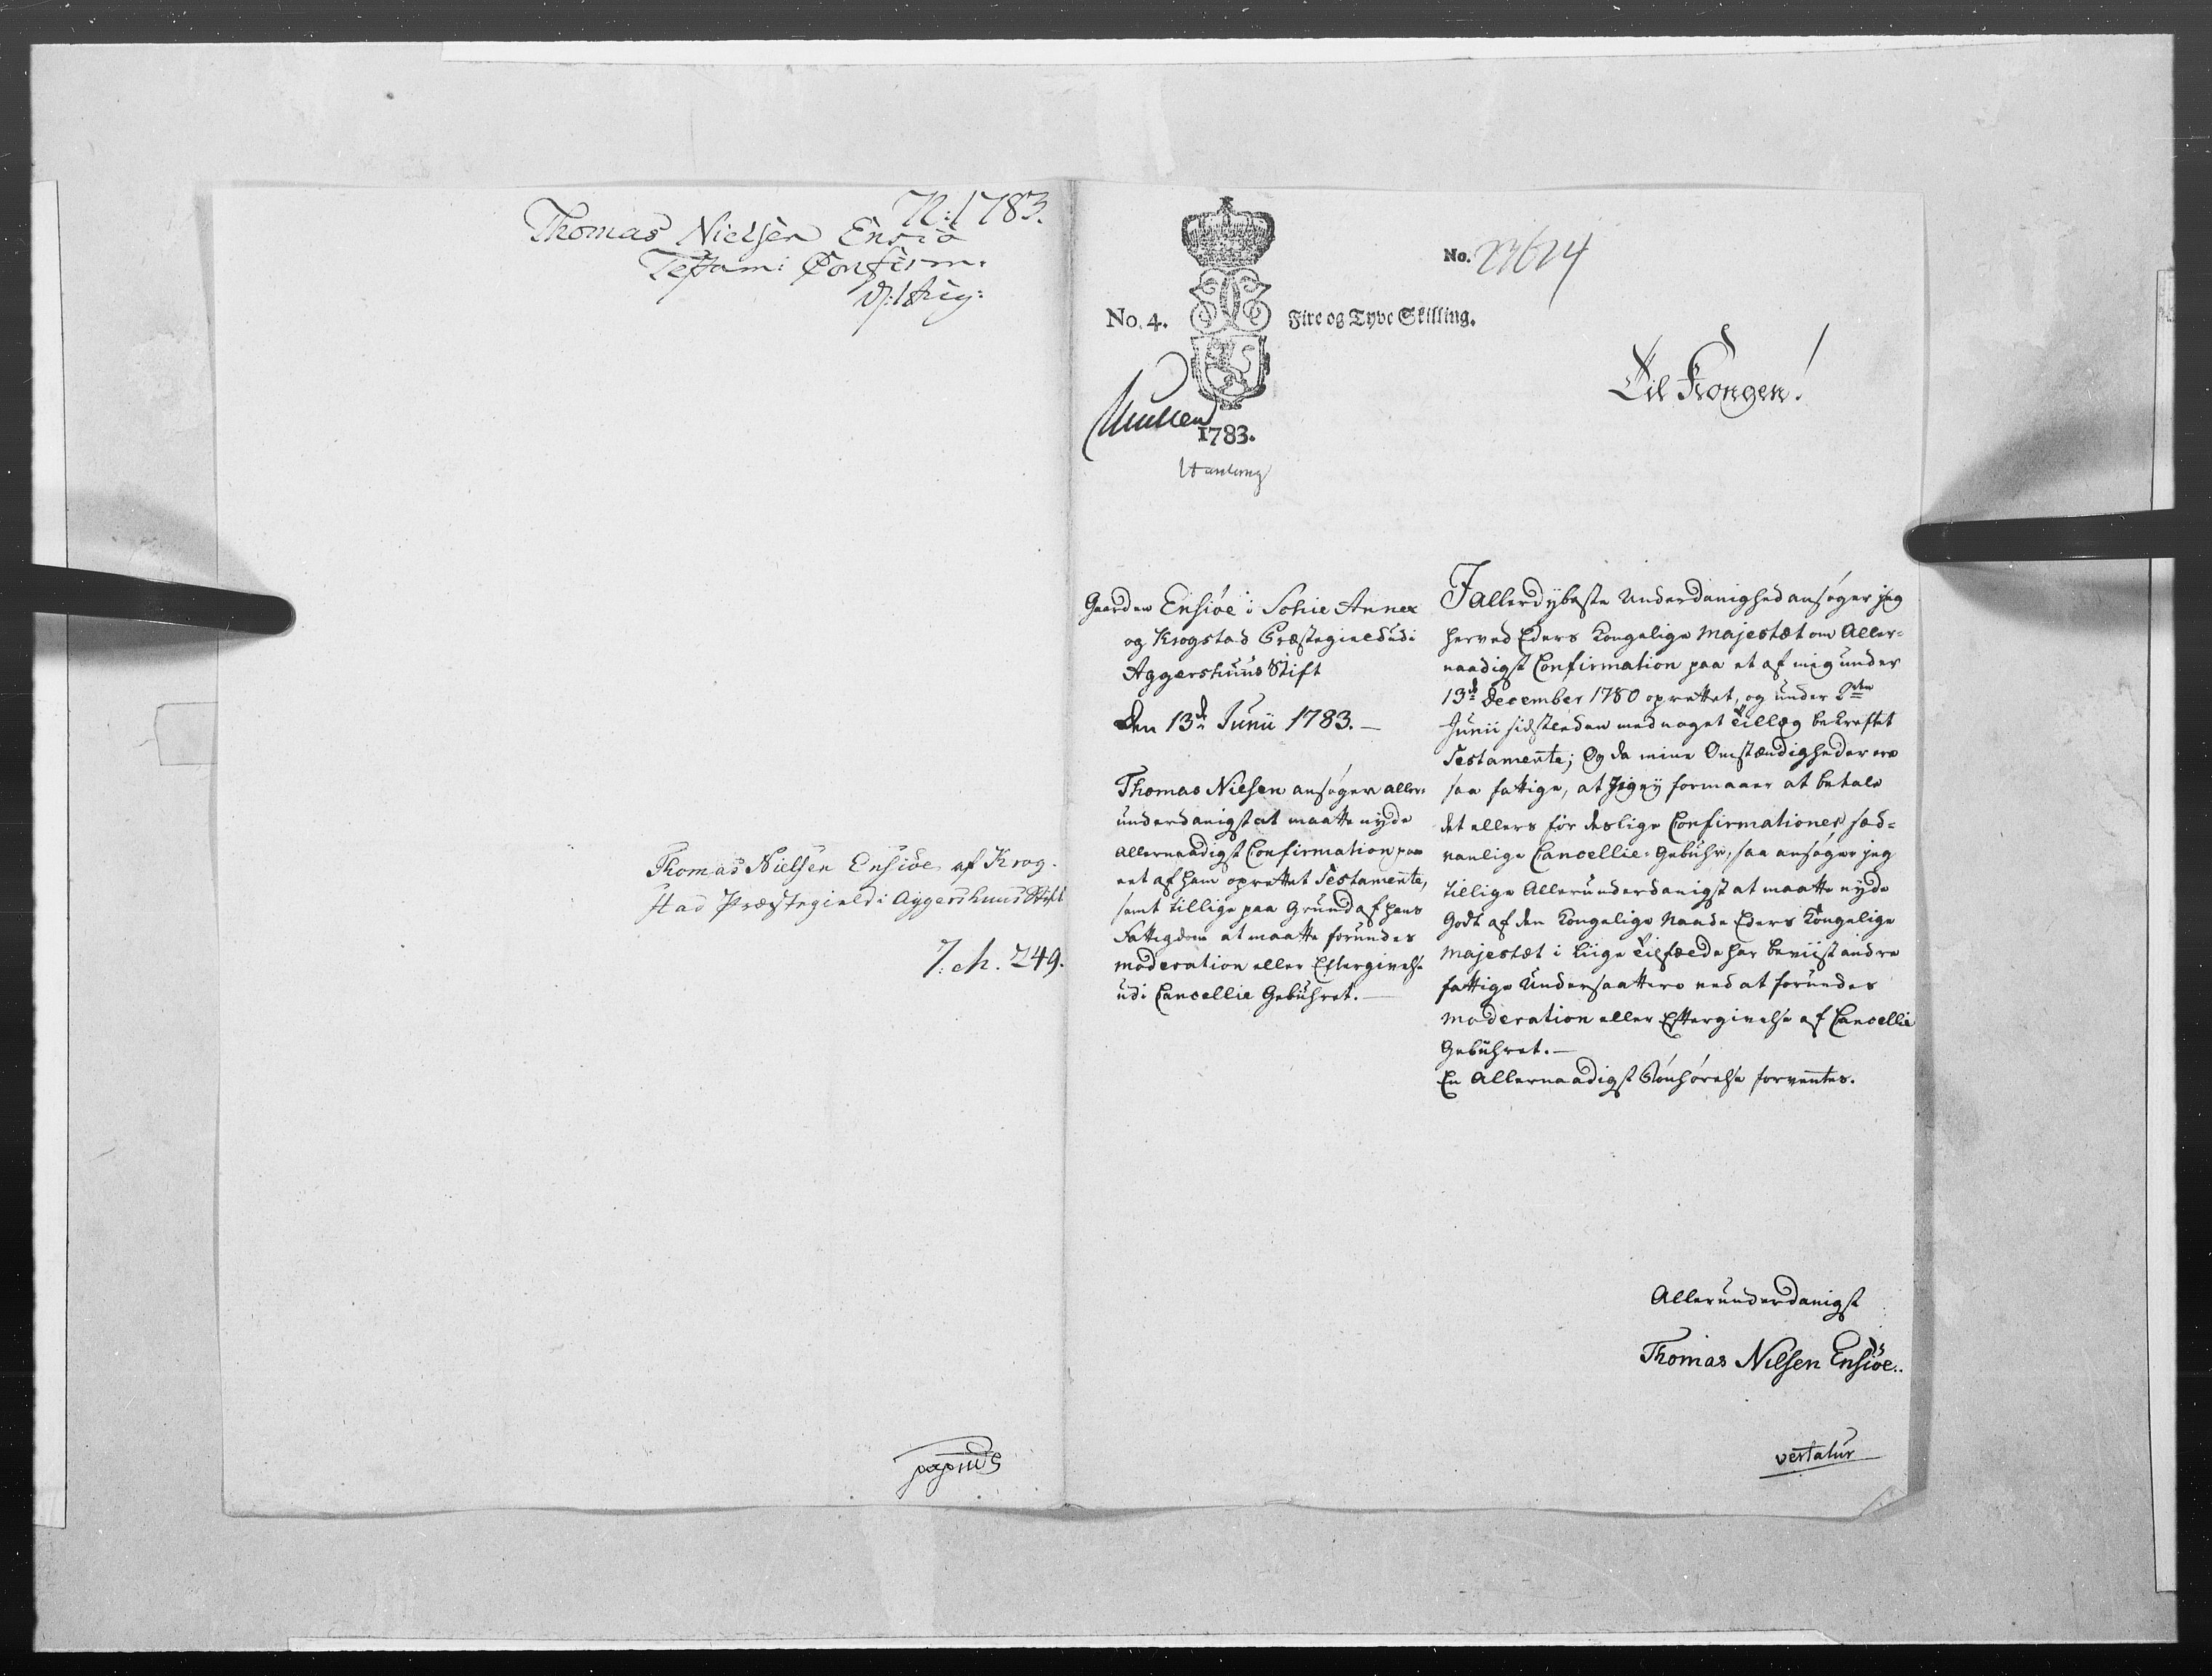 N: 1783.
Thomas Nielsen Ensiö
Testam: Confirm:
d: 1 Aug:
Thomas Nielsen Ensiöe af Krog-
stad Præstegield i Aggershuus Stift
7. ch. 249.
No. 4.
Fire og Tyve Skilling.
1783.
No. 27624
Til Kongen!
Gaarden Ensiöe i Schie Annex
og Krogstad Præstegield udi
Aggershuus Stift
den 13de Junii 1783. —
Thomas Nielsen ansøger aller-
underdanigst at maatte nyde
Allernaadigst Confirmation paa
eet af ham oprettet Testamente,
samt tillige paa Grund af hans
Fattigdom at maatte forundes
moderation eller Eftergivelse
udi Cancellie Gebühret. —
I allerdybeste Underdanighed ansøger jeg
herved Eders Kongelige Majestæt om Aller-
naadigst Confirmation paa et af mig under
13de December 1780 oprettet, og under 2den
Junii sidstleden med noget Tillæg bekreftet
Testamente; Og da mine Omstændigheder ere
saa fattige, at Jeg ey formaaer at betale
det ellers for deslige Confirmationer sæd-
vanlige Cancellie-Gebühr, saa ansøger jeg
tillige Allerunderdanigst at maatte nyde
Godt af den Kongelige Naade Eders Kongelige
Majestæt i liige Tilfælde har beviist andre
fattige Undersaattere ved at forundes
moderation eller Eftergivelse af Cancellie
Gebühret. —
En Allernaadigst Bönhørelse forventes.
Allerunderdanigst
Thomas Nilsen Ensiöe..
vertatur